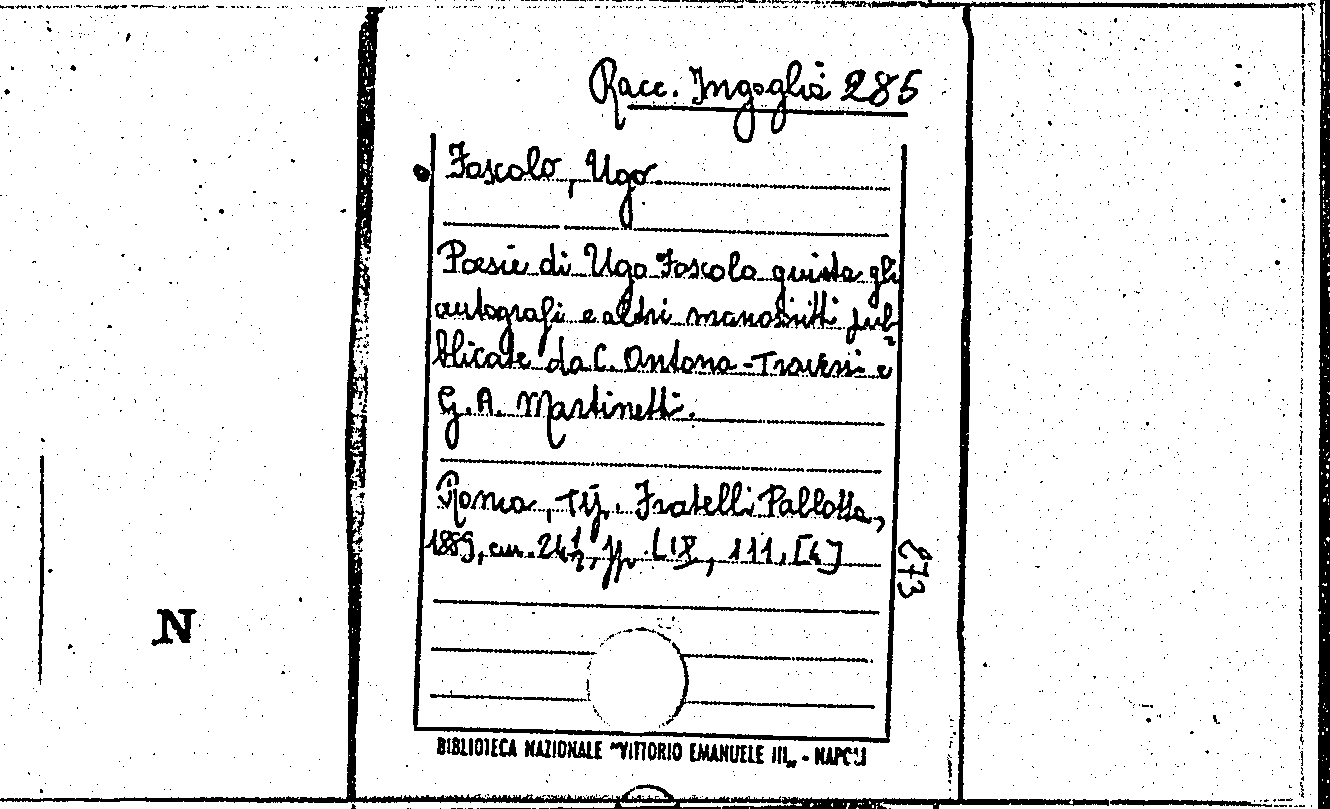 Racc. Ingoglia 285
Foscolo, Ugo.
Poesie di Ugo Foscolo giusta gli
autografi e altri manoscritti pub-
blicate da C. Antona-Traversi e
G. A. Martinetti.
Roma, Tip. Fratelli Pallotta,
1889, cm. 24½, pp. LIX, 111, [4]
273
N
BIBLIOTECA NAZIONALE "VITTORIO EMANUELE III„ - NAPOLI